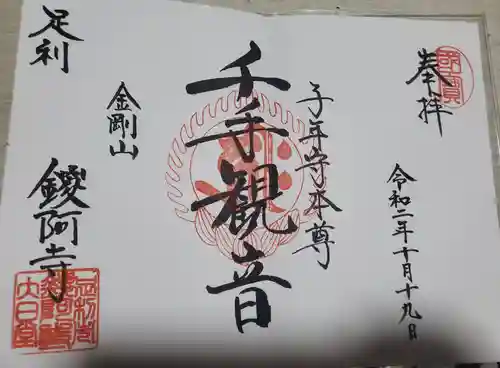 奉拝
令和二年十月十九日
子年守本尊
千手観音
金剛山
足利
鑁阿寺